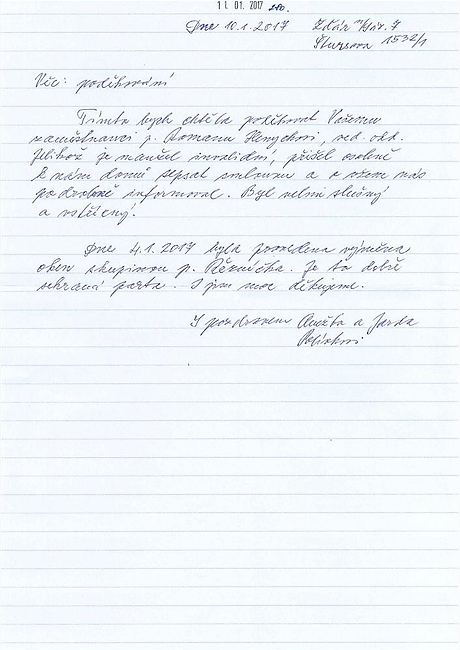 11. 01. 2017
Dne 10.1.2017 Žďár n/Sáz. 7
Štursova 1532/1
Věc: poděkování
Tímto bych chtěla poděkovat Vašemu
zaměstnanci p. Romanu Henychovi, ved. odd.
Jelikož je manžel invalidní, přišel osobně
k nám domů sepsat smlouvu a o všem nás
podrobně informoval. Byl velmi slušný
a vstřícný.
Dne 4.1.2017 byla provedena výměna
oken skupinou p. Řezníčka. Je to dobře
sehraná parta. I jim moc děkujeme.
S pozdravem Anežka a Jarda